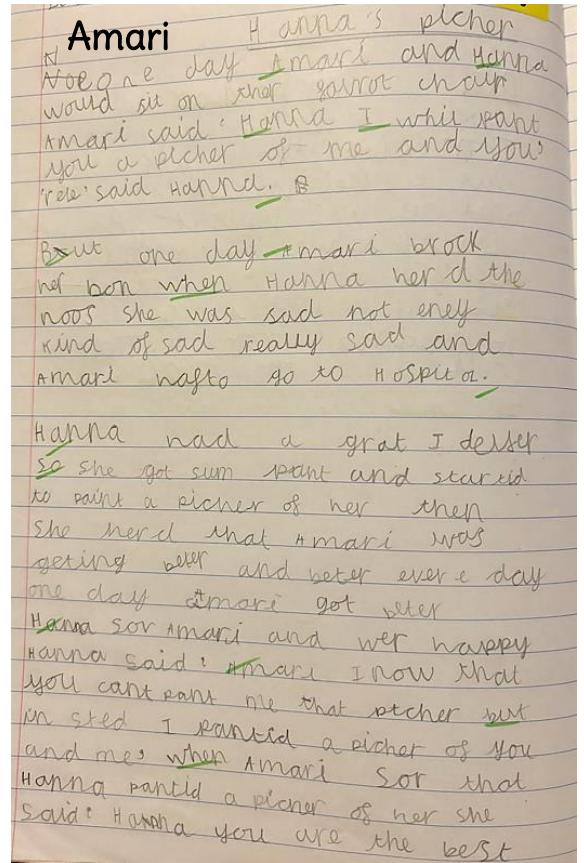 Amari
Hanna's picher
one day Amari and Hanna
would sit on ther chair
Amari said 'Hanna I whil pant
you a picher of me and you'
said Hanna.
But one day Amari brock
her bon when Hanna herd the
noos she was sad not eney
kind of sad really sad and
Amari hafto go to Hospitol.
Hanna had a grat I desser
so she got sum pant and startid
to paint a picher of her then
she herd that Amari was
geting beter and beter evere day
one day Amari got beter
Hanna sor Amari and wer happy
Hanna said 'Amari I now that
you cant pant me that picher but
in sted I pantid a picher of you
and me' when Amari sor that
Hanna pantid a picher of her she
said 'Hanna you are the best